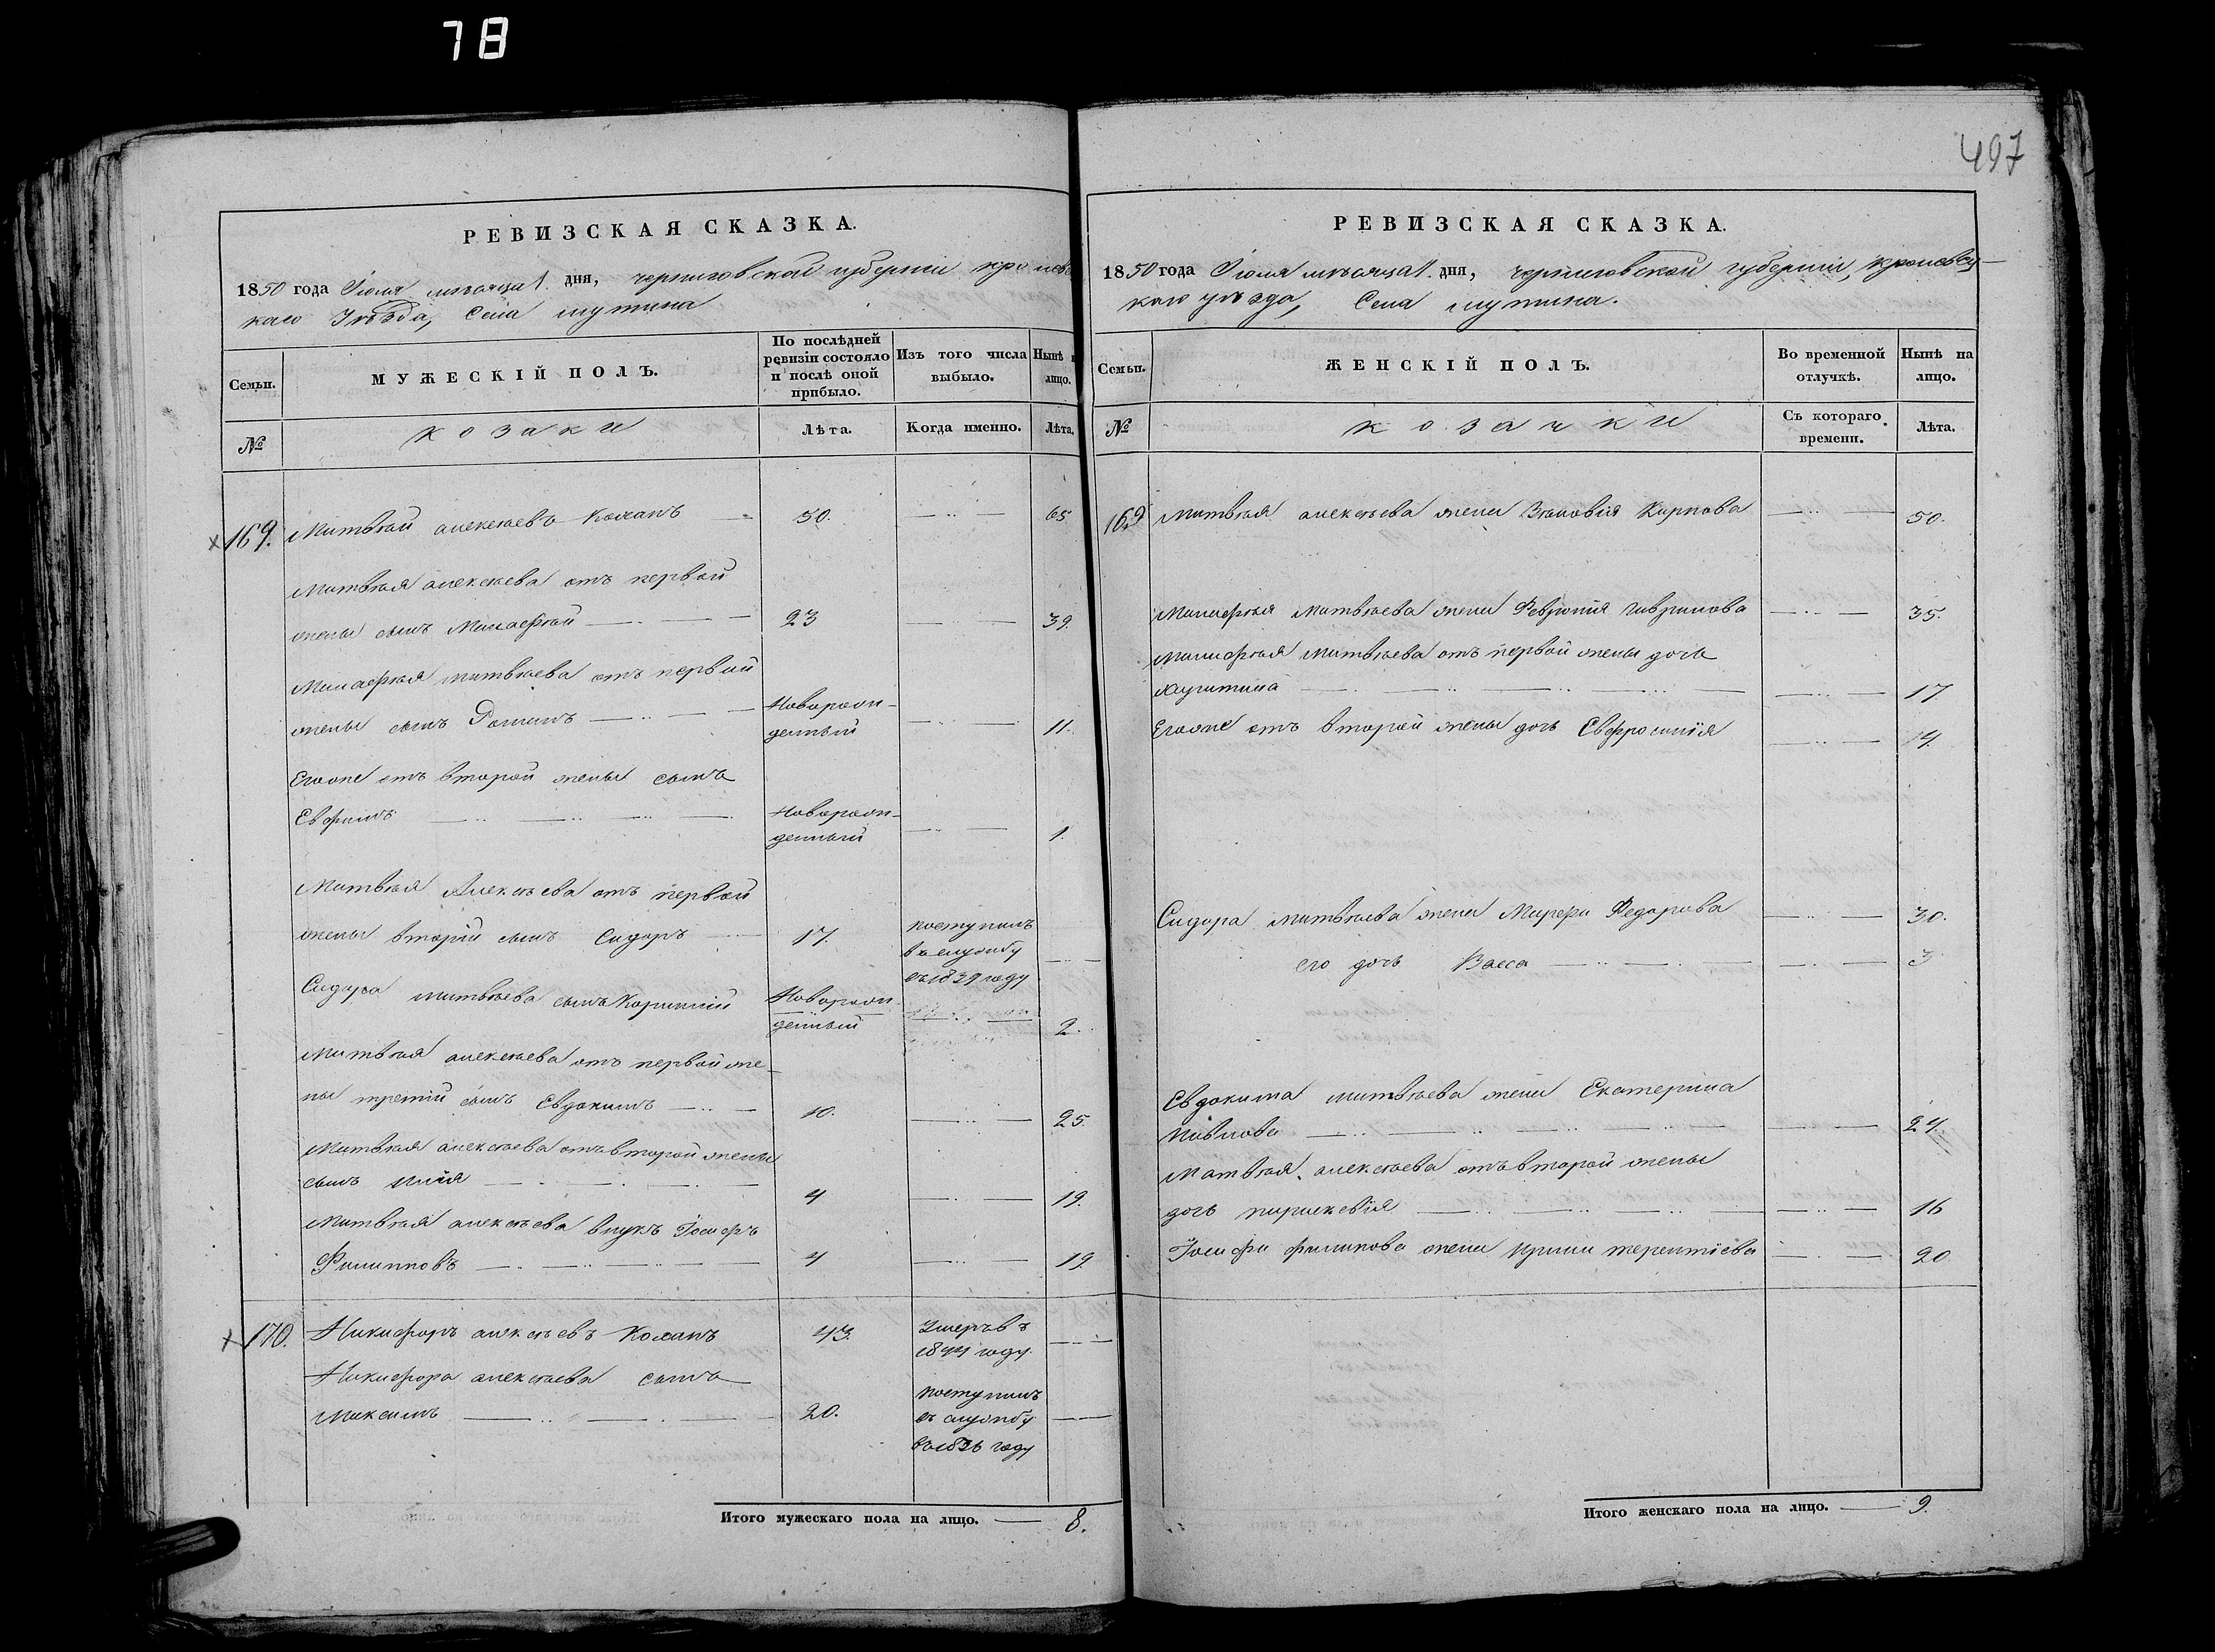 78
497
РЕВИЗСКАЯ СКАЗКА.
1850 года Іюля мѣсяца 1. дня, черниговской губерніи кролевец
каго Уѣзда, Села мутина
Семьи.
МУЖЕСКІЙ ПОЛЪ.
По послѣдней
ревизіи состояло
и послѣ оной
прибыло.
Изъ того числа
выбыло.
Нынѣ н
лицо.
№
козаки
Лѣта.
Когда именно.
Лѣта.
169. Матвѣй алексѣевъ Коханъ 50. 65
Матвѣя алексѣева отъ первой
жены сынъ Малафѣй 23 39.
Малафѣя матвѣева отъ первой
жены сынъ Романъ Новорож-
денный 11.
Егоже отъ второй жены сынъ
Евфимъ Новорож-
денный 1.
Матвѣя Алексѣева отъ первой
жены вторій сынъ Сидоръ 17. поступилъ
въ службу
въ 1839 году
Сидора матвѣева сынъ Новорож-
денный 2.
Матвѣя алексѣева отъ первой же-
ны третій сынъ Евдокимъ 10. 25.
Матвѣя алексѣева отъ второй жены
сынъ илія 4 19.
Матвѣя алексѣева внукъ Іосифъ
Филипповъ 4 19.
170. Никифоръ алексѣевъ Коханъ 43. Умеръ въ
1844 году.
Никифора алексѣева сынъ
Максимъ 20. поступилъ
въ службу
въ 1836 году
Итого мужескаго пола на лицо. 8.
РЕВИЗСКАЯ СКАЗКА.
1850 года Іюля мѣсяца 1. дня, черниговской губерніи, кролевец-
каго уѣзда, Села мутина.
Семьи.
ЖЕНСКІЙ ПОЛЪ.
Во временной
отлучкѣ.
Нынѣ на
лицо.
№
козачки
Съ котораго
времени.
Лѣта.
169 Матвѣя алексѣева жена Зѣновія Карпова 50.
Малафѣя Матвѣева жена Февронія гаврилова 35.
Малафѣя матвѣева отъ первой жены дочь
харитина 17.
Егоже отъ второй жены дочь Евфросинія 14.
Сидора матвѣева жена Марфа Федорова 30.
его дочь Васса 3
Евдокима матвѣева жена Екатерина
павлова 24.
Матвѣя алексѣева отъ второй жены
дочь параскевія 16
Іосифа филипова жена ирина терентіева 20
Итого женскаго пола на лицо. 9.